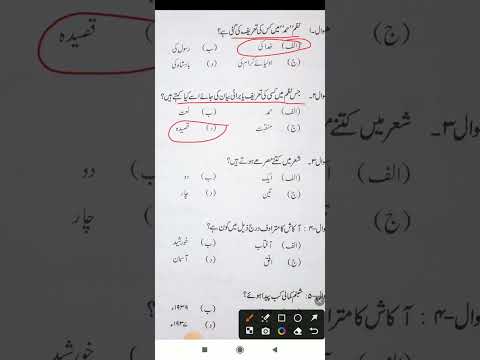 سوال-۱ نظم "حمد" میں کس کی تعریف کی گئی ہے؟
(الف) خدا کی (ب) رسول کی
(ج) اولیائے کرام کی (د) بادشاہ کی
سوال-۲ جس نظم میں کسی کی تعریف یا برائی بیان کی جائے اسے کیا کہتے ہیں؟
(الف) حمد (ب) نعت
(ج) منقبت (د) قصیدہ
سوال-۳ شعر میں کتنے مصرعے ہوتے ہیں؟
(الف) ایک (ب) دو
(ج) تین (د) چار
سوال-۴: آکاش کا مترادف درج ذیل میں کون ہے؟
(الف) آفتاب (ب) خورشید
(ج) افق (د) آسمان
سوال-۵: شبنم کمالی کب پیدا ہوئے؟
(ب) ۱۹۳۶ء
(د)
(ج)
سوال ۳- شعر میں کتنے
(الف)
(ج)
سوال-۴: آکاش کا
قصیدہ
دو
چار
خورشید